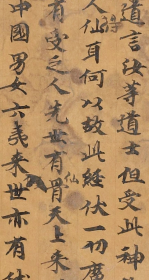 道言汝等道士但受此神
人仙耳何以故此經伏一切魔
有受之人先世有骨天上來
仙
中國男女六夷來世亦有